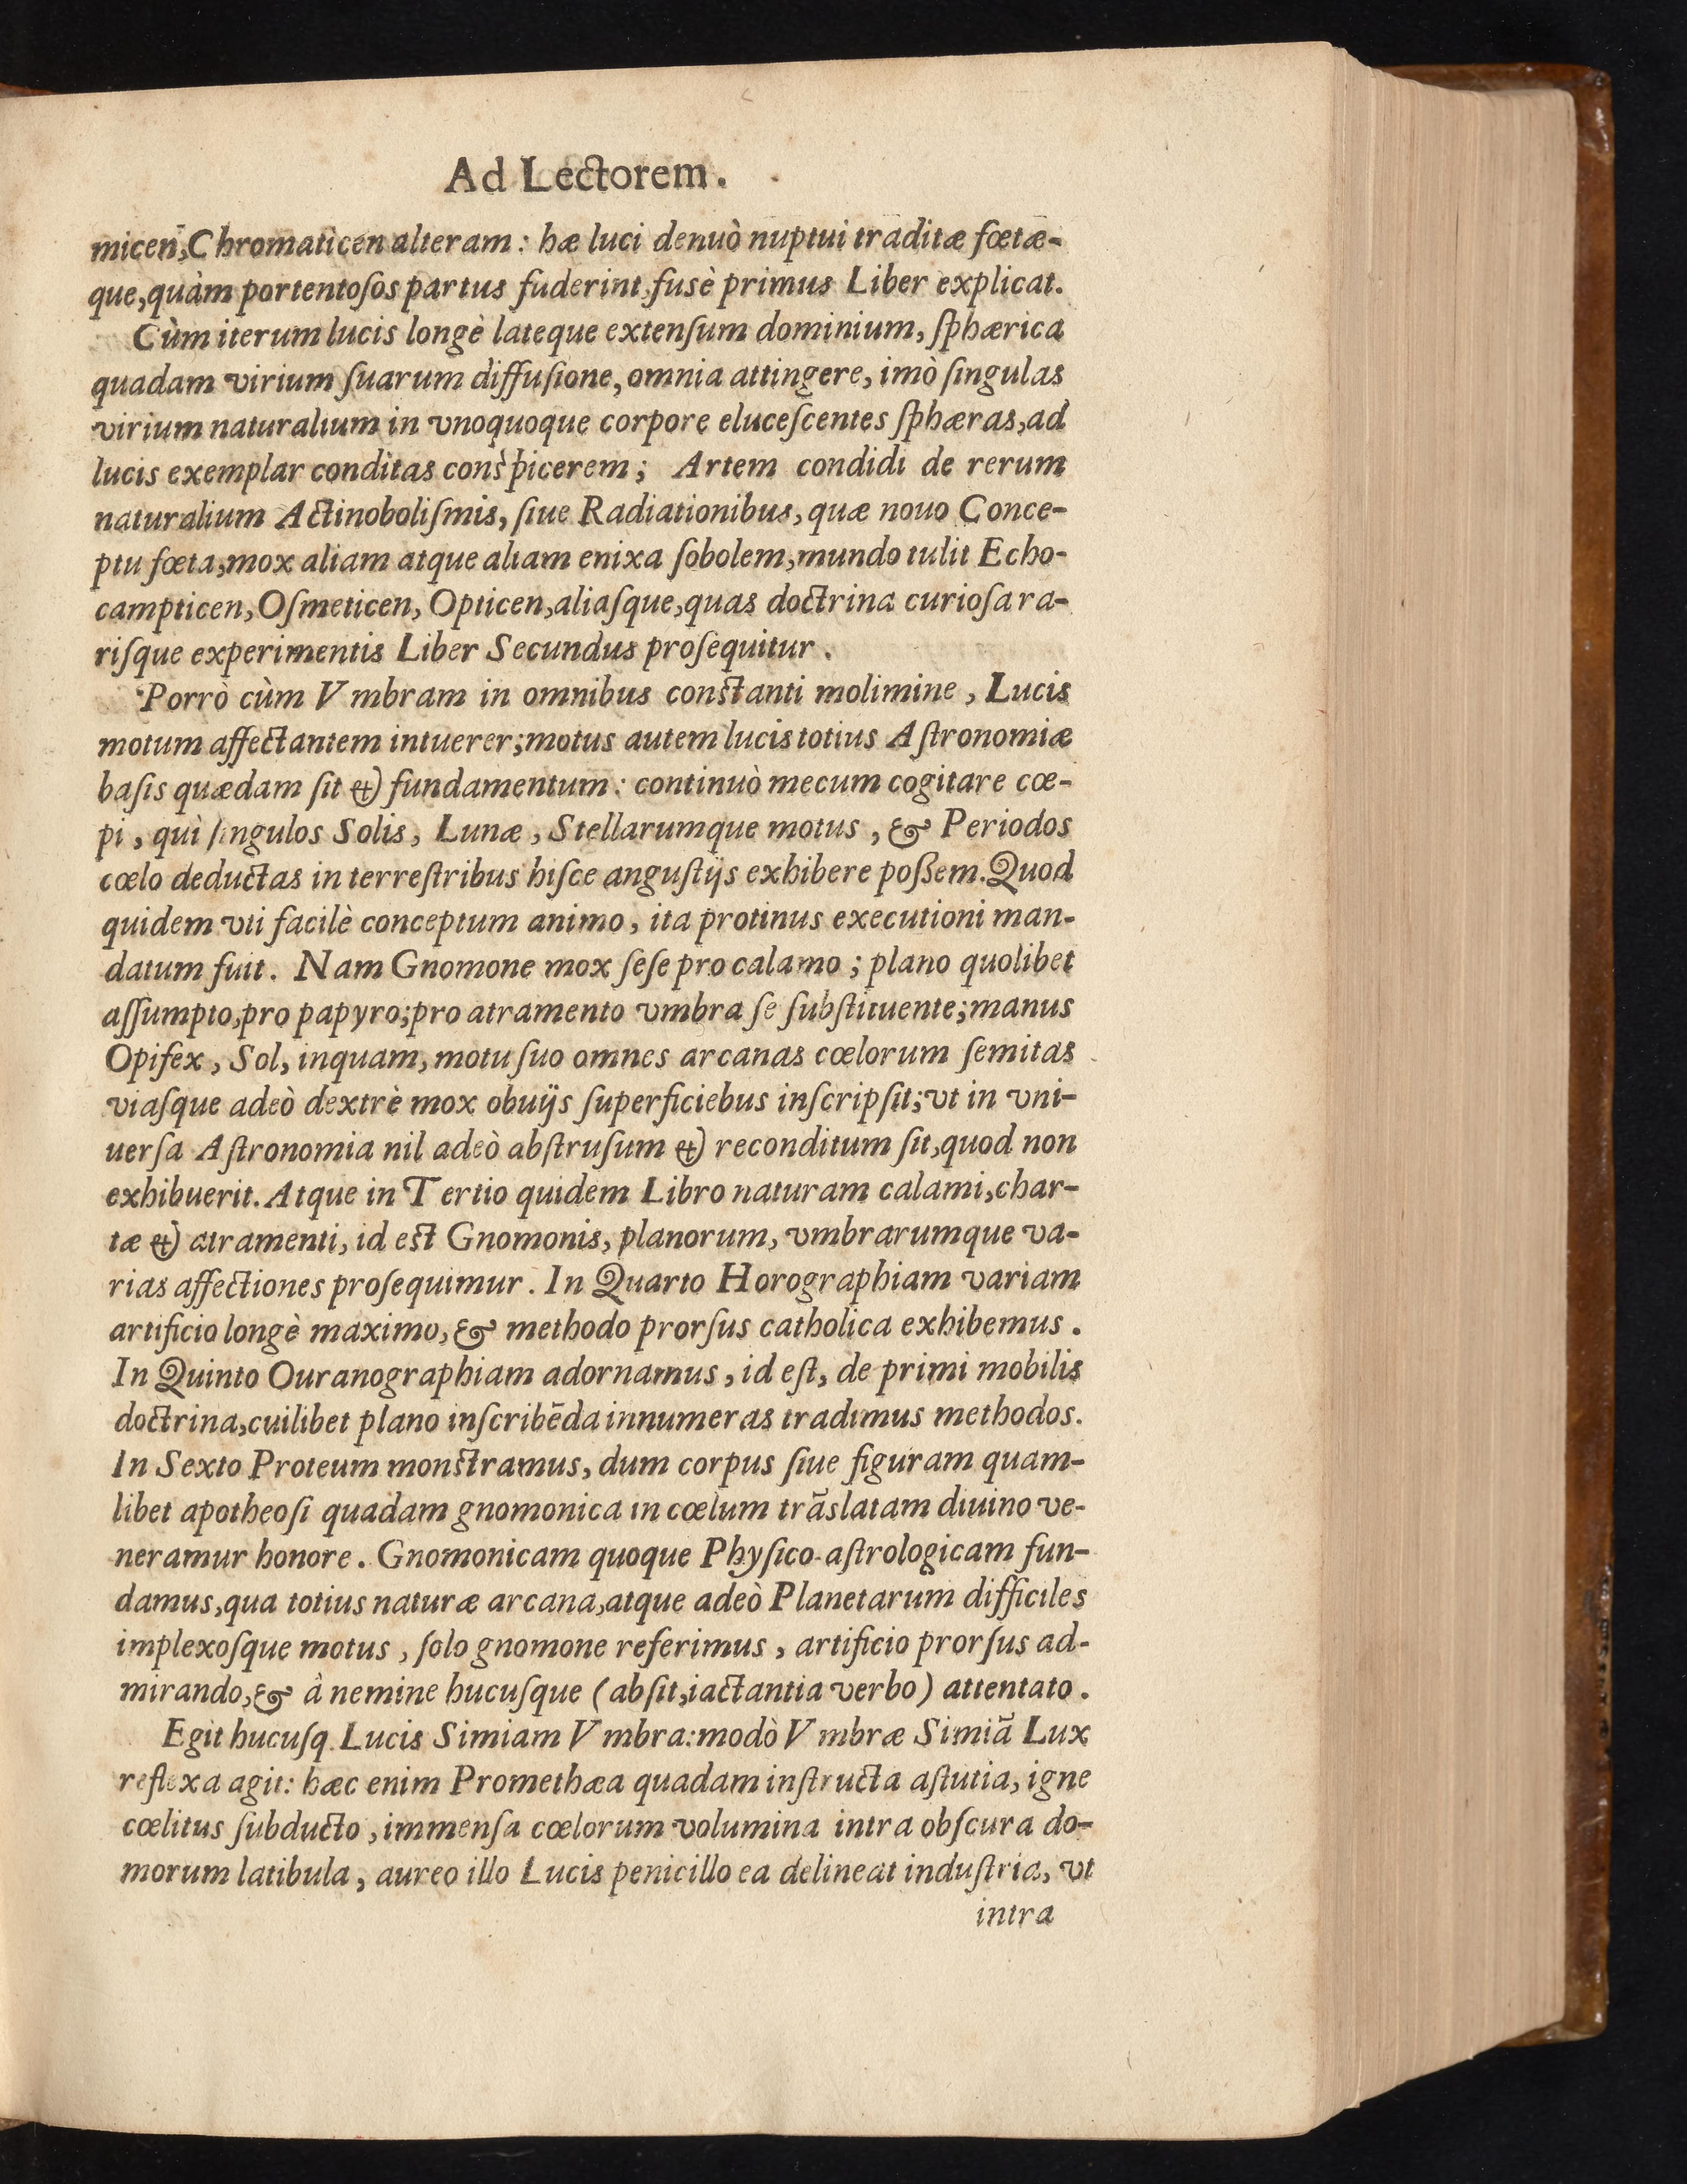 Ad Lectorem.
micen,Chromaticen alteram: hæ luci denuò nuptui traditæ fœtæ-
que,quàm portentoſos partus fuderint,fusè primus Liber explicat.
Cùm iterum lucis longè lateque extenſum dominium, ſphærica
quadam virium ſuarum diffuſione, omnia attingere, imò ſingulas
virium naturalium in vnoquoque corpore eluceſcentes ſphæras,ad
lucis exemplar conditas conſpicerem; Artem condidi de rerum
naturalium Actinoboliſmis, ſiue Radiationibus, quæ nouo Conce-
ptu fœta,mox aliam atque aliam enixa ſobolem,mundo tulit Echo-
campticen, Oſmeticen, Opticen,aliaſque,quas doctrina curioſa ra-
riſque experimentis Liber Secundus proſequitur.
Porrò cùm Vmbram in omnibus conſtanti molimine, Lucis
motum affectantem intuerer;motus autem lucis totius Aſtronomiæ
baſis quædam ſit & fundamentum: continuò mecum cogitare cœ-
pi, quì ſingulos Solis, Lunæ, Stellarumque motus, & Periodos
cœlo deductas in terreſtribus hiſce anguſtijs exhibere poßem. Quod
quidem vti facilè conceptum animo, ita protinus executioni man-
datum fuit. Nam Gnomone mox ſeſe pro calamo; plano quolibet
aſſumpto,pro papyro;pro atramento vmbra ſe ſubſtituente;manus
Opifex, Sol, inquam, motu ſuo omnes arcanas cœlorum ſemitas
viaſque adeò dextrè mox obuijs ſuperficiebus inſcripſit;vt in vni-
uerſa Aſtronomia nil adeò abſtruſum & reconditum ſit,quod non
exhibuerit. Atque in Tertio quidem Libro naturam calami,char-
tæ & atramenti, id eſt Gnomonis, planorum, vmbrarumque va-
rias affectiones proſequimur. In Quarto Horographiam variam
artificio longè maximo, & methodo prorſus catholica exhibemus.
In Quinto Ouranographiam adornamus, id eſt, de primi mobilis
doctrina,cuilibet plano inſcribēda innumeras tradimus methodos.
In Sexto Proteum monſtramus, dum corpus ſiue figuram quam-
libet apotheoſi quadam gnomonica in cœlum trāslatam diuino ve-
neramur honore. Gnomonicam quoque Phyſico-aſtrologicam fun-
damus,qua totius naturæ arcana,atque adeò Planetarum difficiles
implexoſque motus, ſolo gnomone referimus, artificio prorſus ad-
mirando, & à nemine hucuſque (abſit,iactantia verbo) attentato.
Egit hucuſq. Lucis Simiam Vmbra:modò Vmbræ Simiā Lux
reflexa agit: hæc enim Promethæa quadam inſtructa aſtutia, igne
cœlitus ſubducto, immenſa cœlorum volumina intra obſcura do-
morum latibula, aureo illo Lucis penicillo ea delineat induſtria, vt
intra